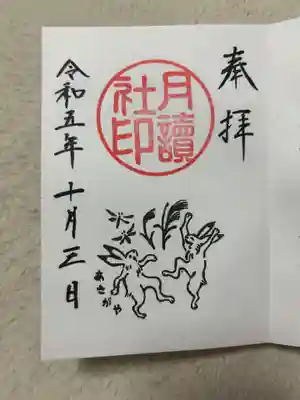 奉拝
月讀社印
令和五年十月三日
あさがや